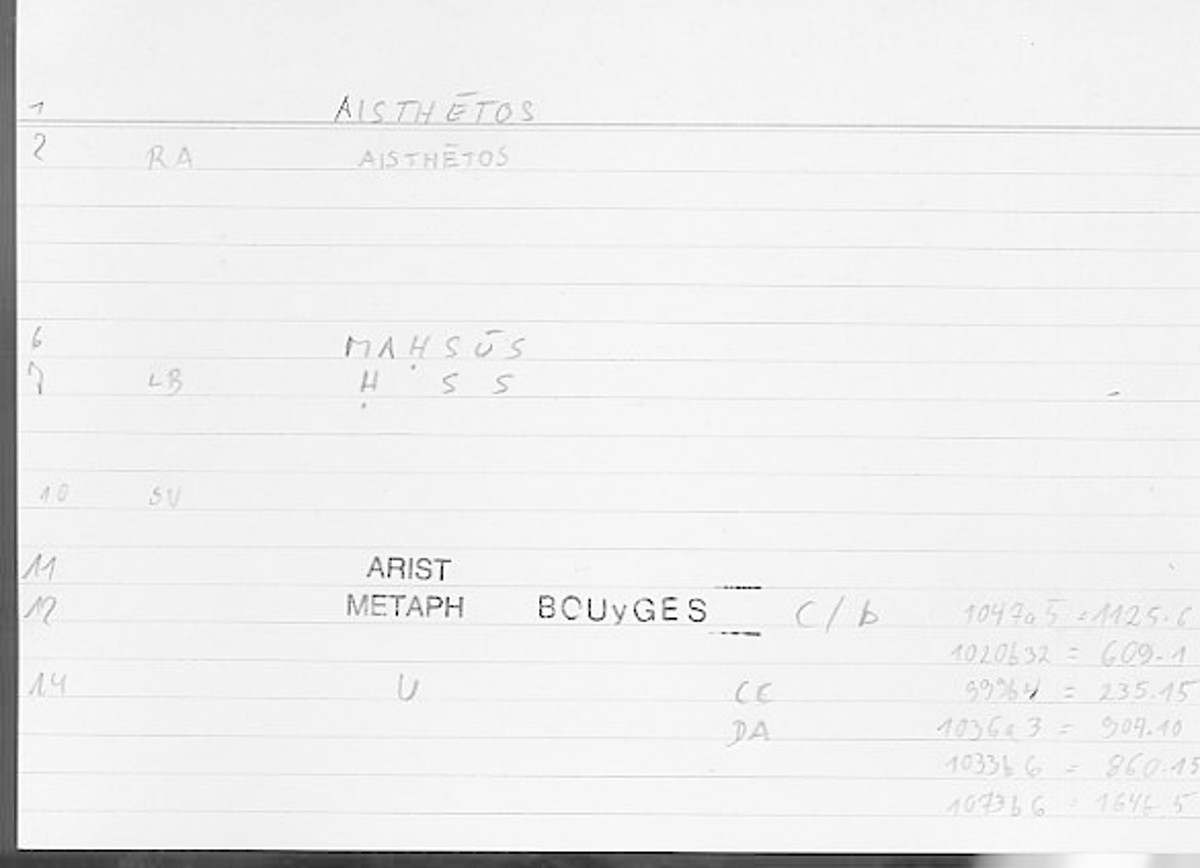 1 AISTHĒTOS
2 RA AISTHĒTOS
6 MAḤSŪS
7 LB Ḥ S S
10 SV
11 ARIST
12 METAPH BOUyGES C/b 1047a5 = 1125.6
1020b32 = 609.1
14 U CE 999b4 = 235.15
DA 1036a3 = 904.10
1033b6 = 860.15
1073b6 = 1646.5